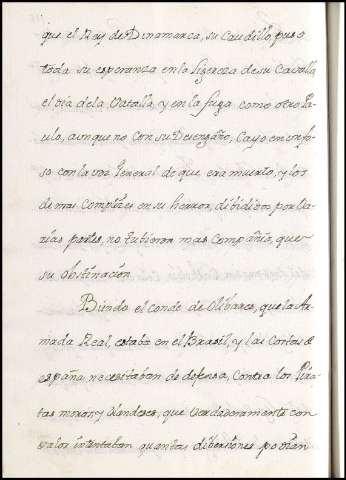 que el Rey de Dinamarca, su Caudillo, puso
toda su esperanza en la ligereza de su Cavallo
el dia de la Vatalla, y en la fuga como otro Pa-
ulo, aunque no con su Desengaño, Cayo en un fo-
so con la voz General de que era muerto, y los
de mas Complizes en su herror, dibididos por Ba-
rias partes, no tubieron mas Compañia, que
su obstinación
Biendo el conde de Olibares, que la Ar-
mada Real, estaba en el Brasil, y las Costas de
españa necesitaban de defensa, Contra los Pira-
tas moros, y olandeses, que Verdaderamente con
valor intentaban quantas dibersiones podian